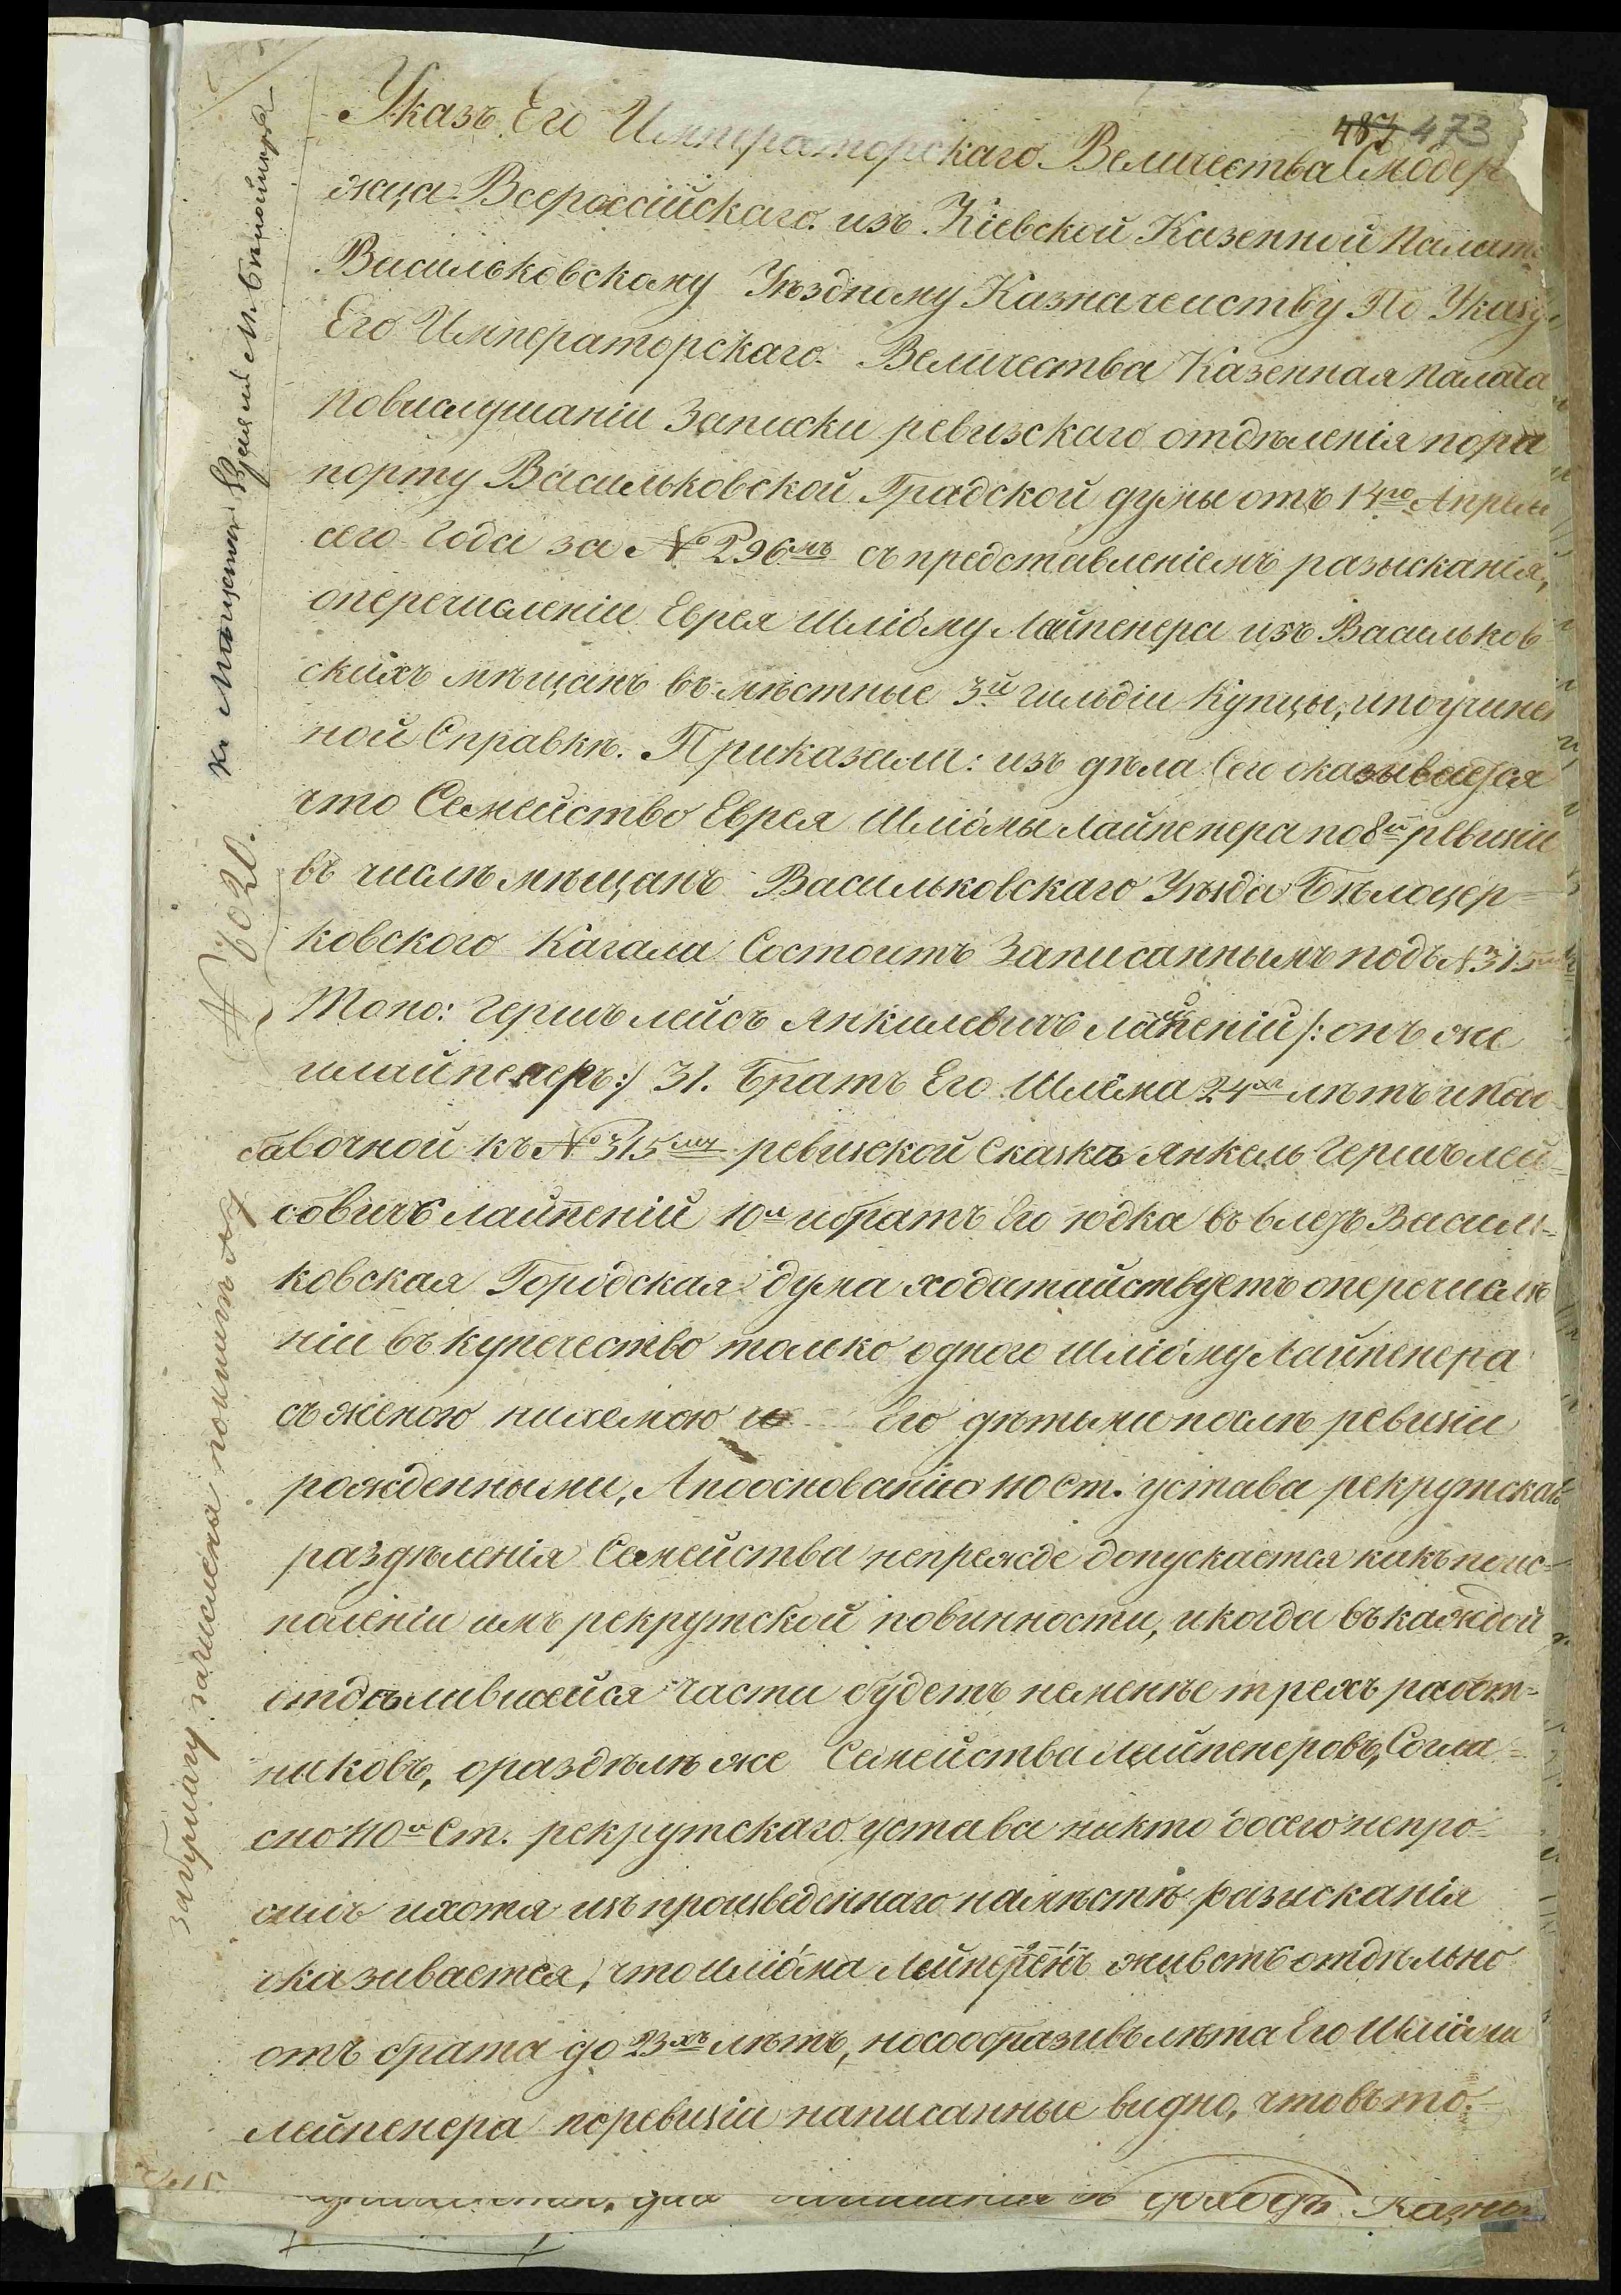 487 473
Указъ Его Императорскаго Величества Самодер
жца Всероссійскаго изъ Кіевской Казенной Палаты
Васильковскому Уѣздному Казначейству По Указу
Его Императорскаго Величества Казенная палата
повислушаніи Записки ревизскаго отдѣленія пора
порту Васильковской Градской думы отъ 14го Апрѣля
сего года за № 296мъ съ представленіемъ разысканія,
оперечисленіи Еврея Шліому Лайпенера изъ Васильков
скихъ мѣщанъ въ мѣстные 3й гильдіи купцы, ипоучинен
ной Справкѣ. Приказали: изъ дѣла Сего оказывается
что Семейство Еврея Шліомы Лайпенера по 8й ревизіи
въ числѣ мѣщанъ Васильковскаго Уѣзда Бѣлоцер=
ковского Кагала Состоитъ Записаннымъ подъ №315
Топо: Гершъ лейбъ Янкилевичъ лайпеній /: онъ же
шлайпенеръ :/ 31. Братъ Его Шлёма 24хъ лѣтъ
бавочной къ № 315 ревизской Сказкѣ Янкель Гершълей=
бовичъ лайпеній 10и ибратъ Его Юдка 6ъ Василь=
ковская Городская дума ходатайствуетъ оперечисле
ніи въ купечество только одного Шліому Лайпенера
съ женою нихемою Его дѣтьми послѣ ревизіи
рожденными, Апооснованію 110 Ст. устава рекрутскаго
раздѣленія Семейства непрежде допускается какъ поис=
полненіи имъ рекрутской повинности, икогда въ каждой
отдѣлившейся части будетъ неменѣе трехъ работ=
никовъ, ораздѣлѣ же Семейства Лейпенеровъ, Согла=
сно 110й Ст. рекрутскаго устава никто досего непро=
силъ ихотя изъ произведеннаго намѣстѣ разисканія
оказивается, что шліома живетъ отдѣльно
отъ брата до 23хъ лѣтъ,носообразивъ лѣта Его Шліоми
лейпенера поревизіи написанные видно, что въ то=
доходъ Казны
№ 6020.